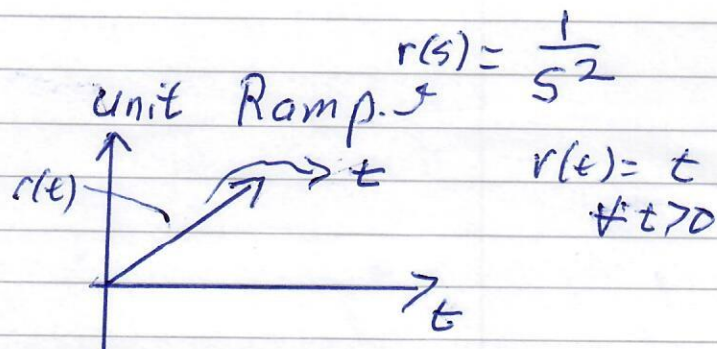 r(s) = 1/s²
unit Ramp.
r(t)
t
r(t) = t
∀ t>0
t